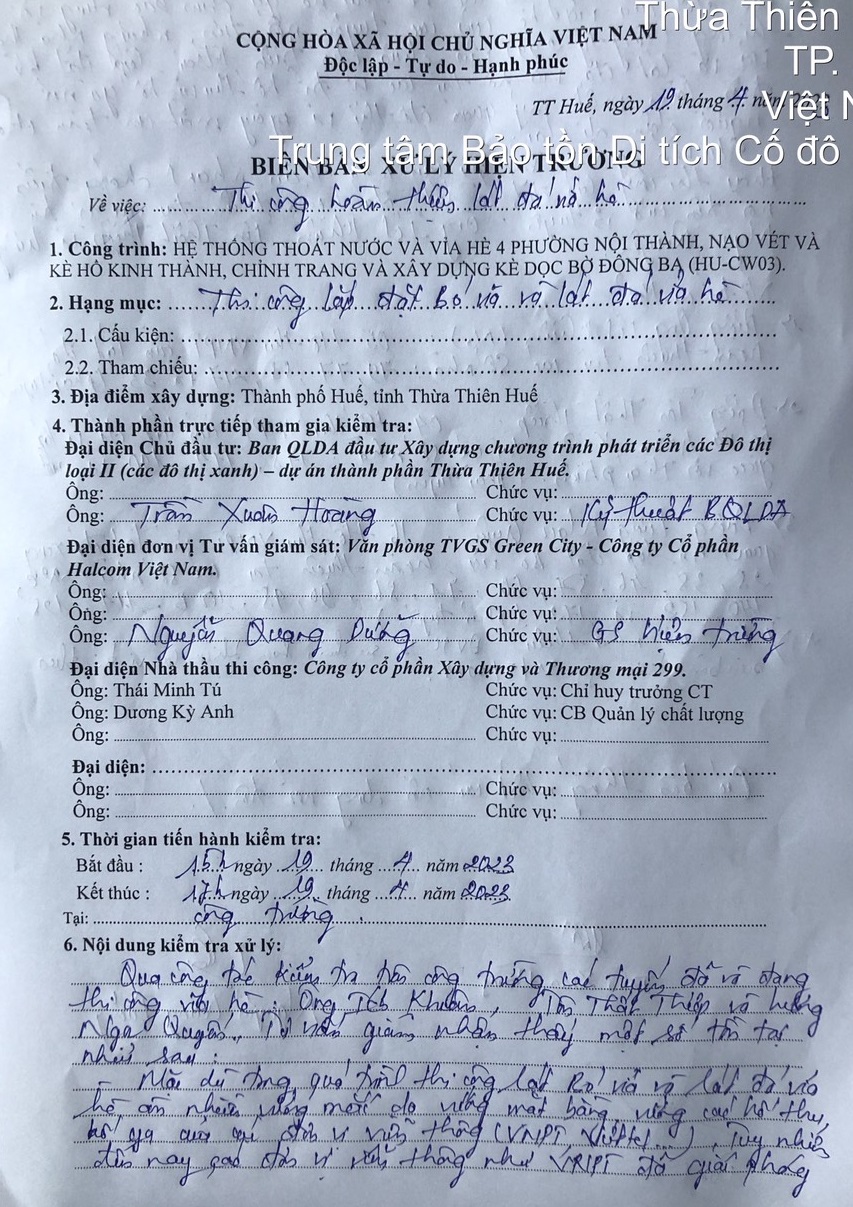 Thừa Thiên
TP.
Việt N
Trung tâm Bảo tồn Di tích Cố đô
CỘNG HÒA XÃ HỘI CHỦ NGHĨA VIỆT NAM
Độc lập - Tự do - Hạnh phúc
TT Huế, ngày 19 tháng 4 năm
BIÊN BẢN XỬ LÝ HIỆN TRƯỜNG
Về việc: Thi công hoàn thiện lát đá vỉa hè
1. Công trình: HỆ THỐNG THOÁT NƯỚC VÀ VỈA HÈ 4 PHƯỜNG NỘI THÀNH, NẠO VÉT VÀ
KÈ HỒ KINH THÀNH, CHỈNH TRANG VÀ XÂY DỰNG KÈ DỌC BỜ ĐÔNG BA (HU-CW03).
2. Hạng mục: Thi công lắp đặt bó vỉa và lát đá vỉa hè
2.1. Cấu kiện:
2.2. Tham chiếu:
3. Địa điểm xây dựng: Thành phố Huế, tỉnh Thừa Thiên Huế
4. Thành phần trực tiếp tham gia kiểm tra:
Đại diện Chủ đầu tư: Ban QLDA đầu tư Xây dựng chương trình phát triển các Đô thị
loại II (các đô thị xanh) – dự án thành phần Thừa Thiên Huế.
Ông: Chức vụ:
Ông: Trần Xuân Hoàng Chức vụ: Kỹ thuật BQLDA
Đại diện đơn vị Tư vấn giám sát: Văn phòng TVGS Green City - Công ty Cổ phần
Halcom Việt Nam.
Ông: Chức vụ:
Ông: Chức vụ:
Ông: Nguyễn Quang Dũng Chức vụ: GS hiện trường
Đại diện Nhà thầu thi công: Công ty cổ phần Xây dựng và Thương mại 299.
Ông: Thái Minh Tú Chức vụ: Chỉ huy trưởng CT
Ông: Dương Kỳ Anh Chức vụ: CB Quản lý chất lượng
Ông: Chức vụ:
Đại diện:
Ông: Chức vụ:
Ông: Chức vụ:
5. Thời gian tiến hành kiểm tra:
Bắt đầu : 15h ngày 19 tháng 4 năm 2023
Kết thúc : 17h ngày 19 tháng 4 năm 2023
Tại: công trường
6. Nội dung kiểm tra xử lý:
Qua công tác kiểm tra trên công trường các tuyến đã và đang
thi công vỉa hè: Ông Ích Khiêm, Tôn Thất Thiệp và
Quyền, Tư vấn giám nhận thấy một số tồn tại
như sau:
- Mặc dù trong quá trình thi công lắp bó vỉa và lát đá vỉa
hè còn nhiều vướng mắc do vướng mặt bằng, vướng các hố thu,
hố ga của các đơn vị viễn thông (VNPT, Viettel...). Tuy nhiên
đến nay các đơn vị viễn thông như VNPT đã giải phóng